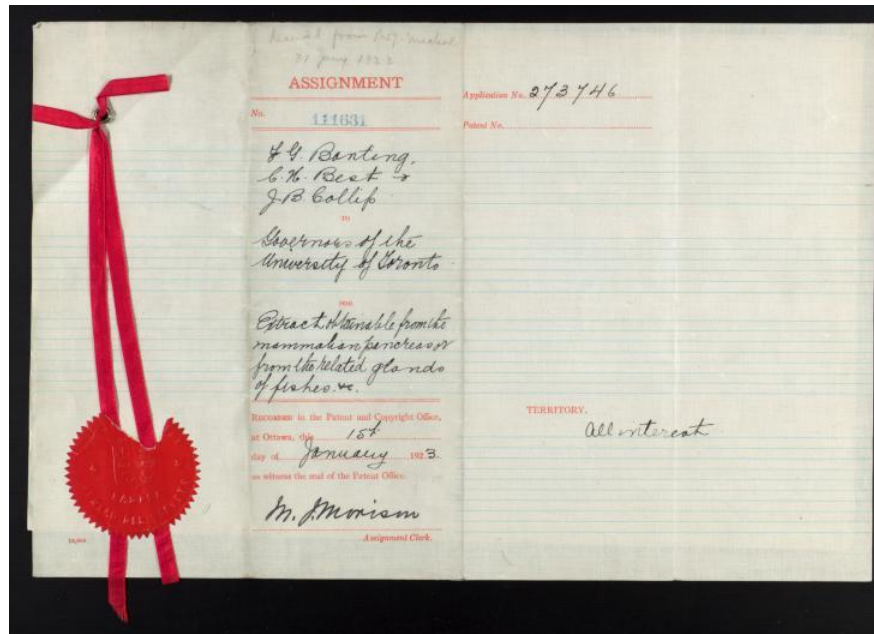 Received from Prof.
31 Jany 1923
ASSIGNMENT
No. 111631
F. G. Banting,
C. H. Best &
J. B. Collip
TO
Governors of the
University of Toronto
FOR
Extract obtainable from the
mammalian pancreas or
from the related glands
of fishes &c.
RECORDED in the Patent and Copyright Office,
at Ottawa, this 15th
day of January 1923.
as witness the seal of the Patent Office.
M. J. Morison
Assignment Clerk.
Application No. 273746
Patent No.
TERRITORY.
All interest